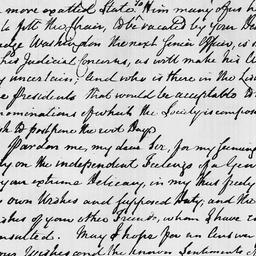 more exalted State. To Him many Offices h
to fill the Chair, to be vacated by your De
udge Washington the next Senior Officer, is s
his Judicial Concerns, as will make his A
y uncertain; And who is there in the Lis
e Presidents that would be acceptable to
nominations of which the Society is compos
to postpone the next Day
Pardon me, my dear Sir, for my seeming
ly on the independent Feelings of a Gen
your extreme Delicacy, in my thus freely
own Wishes and supposed Duty, and the
ishes of your other Friends, whom I have co
nsulted. May I hope for an Answer
our Wishes and the known Sentiments of